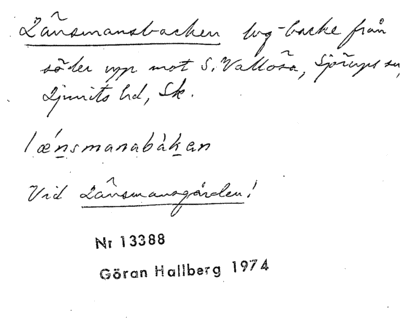 Länsmansbacken väg-backe från
söder upp mot S. Vallösa, Sjörups sn,
Ljunits hd, Sk.
lǽnsmanabàkan
Vid Länsmansgården!
Nr 13388
Göran Hallberg 1974